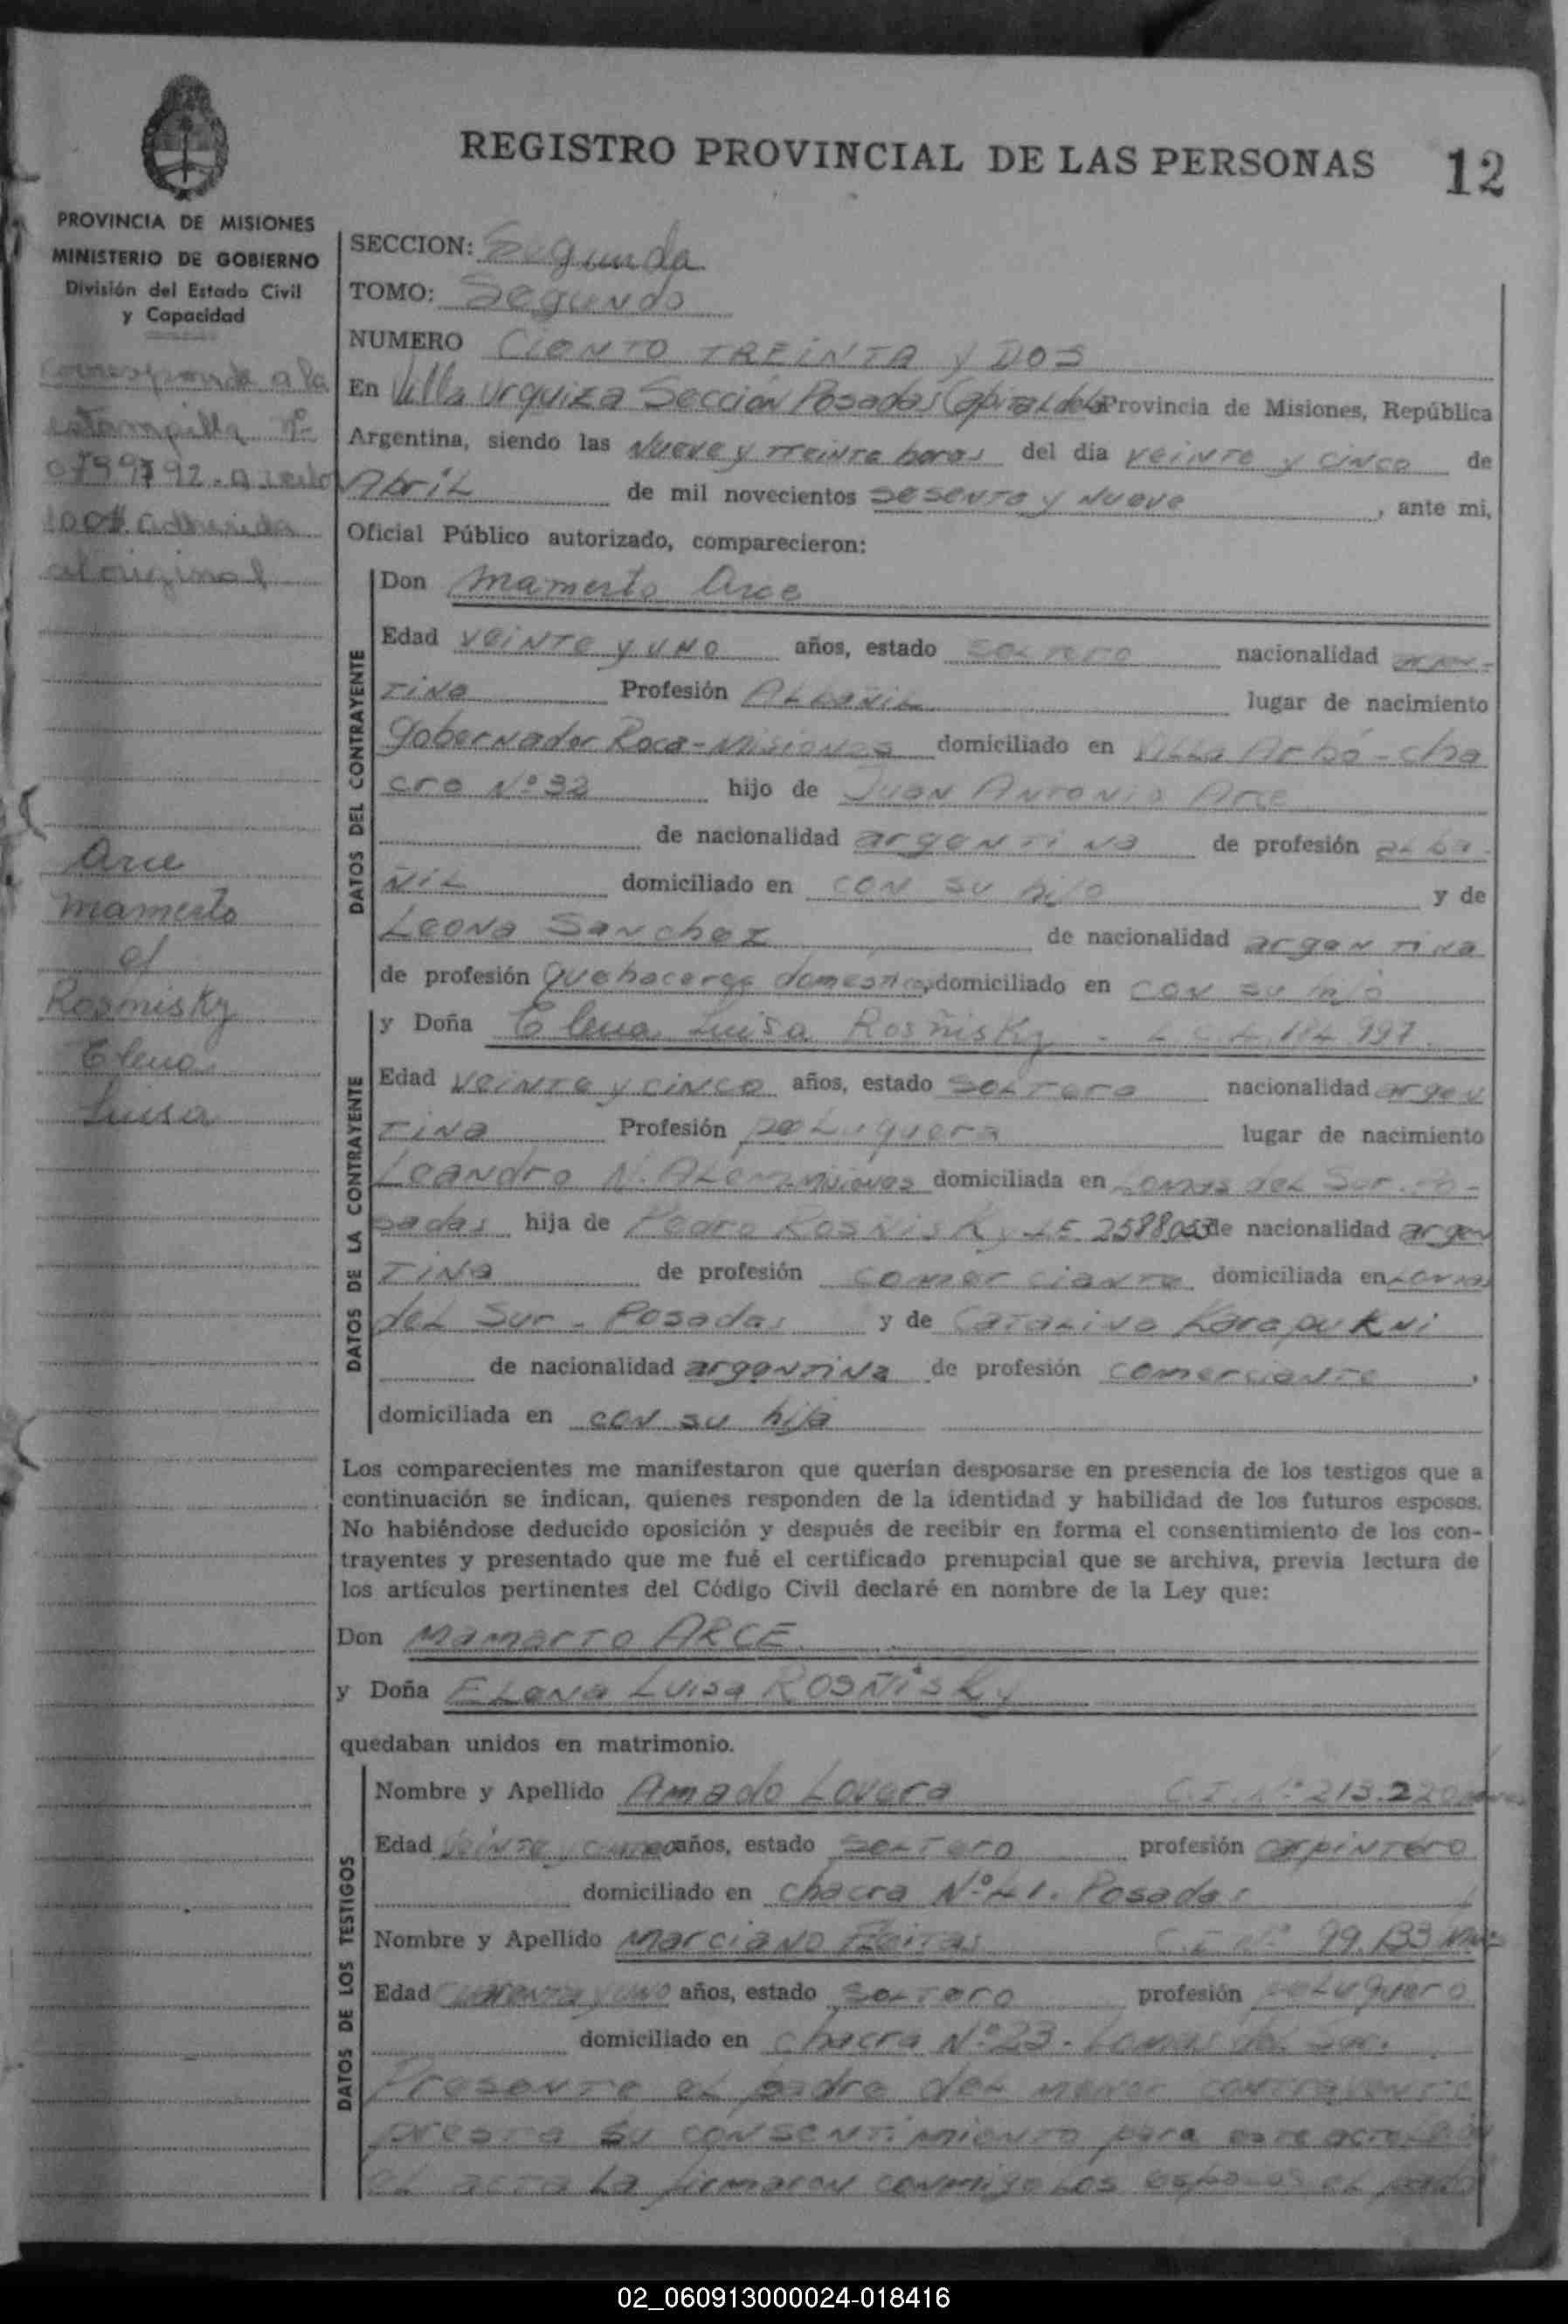 REGISTRO PROVINCIAL DE LAS PERSONAS 12
PROVINCIA DE MISIONES
MINISTERIO DE GOBIERNO
División del Estado Civil
y Capacidad
corresponde a la
estampilla Nº
0799792
100$ adherida
al original
Arce
Mamerto
c/
Rosmisky
Elena
Luisa
SECCION: Segunda
TOMO: Segundo
NUMERO CIENTO TREINTA Y DOS
En Villa Urquiza Sección Posadas Capital de la Provincia de Misiones, República
Argentina, siendo las Nueve y Treinta horas del día veinte y cinco de
Abril de mil novecientos sesenta y nueve, ante mi,
Oficial Público autorizado, comparecieron:
DATOS DEL CONTRAYENTE
Don Mamerto Arce
Edad veinte y uno años, estado soltero nacionalidad argen-
tina Profesión Albañil lugar de nacimiento
Gobernador Roca - Misiones domiciliado en Villa Arbó - cha
cra Nº 32 hijo de Juan Antonio Arce
de nacionalidad argentina de profesión alba-
ñil domiciliado en con su hijo y de
Leona Sanchez de nacionalidad argentina
de profesión Quehaceres domesticos, domiciliado en con su hijo
DATOS DE LA CONTRAYENTE
y Doña Elena Luisa Rosñisky - L.C. 4.184.997.
Edad veinte y cinco años, estado soltera nacionalidad argen
tina Profesión peluquera lugar de nacimiento
Leandro N. Alem Misiones domiciliada en Lomas del Sur. Po-
sadas hija de Pedro Rosñisky L.E. 2588053 de nacionalidad argen
tina de profesión comerciante domiciliada en Lomas
del Sur - Posadas y de Catalina Karapukni
de nacionalidad argentina de profesión comerciante,
domiciliada en con su hija
Los comparecientes me manifestaron que querían desposarse en presencia de los testigos que a
continuación se indican, quienes responden de la identidad y habilidad de los futuros esposos.
No habiéndose deducido oposición y después de recibir en forma el consentimiento de los con-
trayentes y presentado que me fué el certificado prenupcial que se archiva, previa lectura de
los artículos pertinentes del Código Civil declaré en nombre de la Ley que:
Don Mamerto ARCE
y Doña Elena Luisa ROSÑISKy
quedaban unidos en matrimonio.
DATOS DE LOS TESTIGOS
Nombre y Apellido Amado Lovera C.I. Nº 213.220
Edad veinte y cuatro años, estado soltero profesión carpintero
domiciliado en chacra Nº 41. Posadas
Nombre y Apellido Marciano Fleitas C.I. Nº 99.133 Mnes
Edad cuarenta y uno años, estado soltero profesión peluquero
domiciliado en chacra Nº 23. Lomas del Sur.
Presente el padre del menor contrayente
presta su consentimiento para este acto. Leida
el acta la firmaron conmigo los esposos el padre
02_060913000024-018416